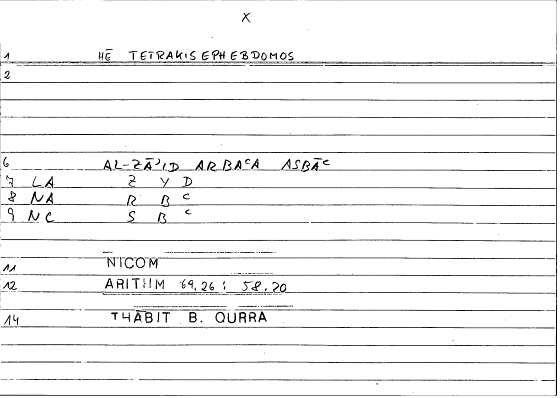 X
1 HĒ TETRAKISEPHEBDOMOS
2
6 AL-ZĀʾID ARBAᶜA ASBĀᶜ
7 LA Z Y D
8 NA R B ᶜ
9 NC S B ᶜ
11 NICOM
12 ARITHM 69,26; 58,20
14 THĀBIT B. QURRA